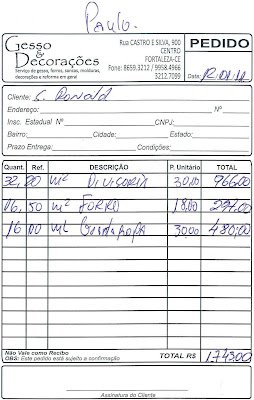 Paulo.
Gesso & Decorações
Serviço de gesso, forros, sancas, molduras, decorações e reforma em geral
Rua CASTRO E SILVA, 900
CENTRO
FORTALEZA-CE
Fone: 8659.3212 / 9958.4966
3212.7099
PEDIDO
Data:
Cliente: S. Ronald
Endereço: Nº
Insc. Estadual Nº CNPJ:
Bairro: Cidade: Estado:
Prazo Entrega: Condições:
Quant. Ref. DESCRIÇÃO P. Unitário TOTAL
32,20 m² Divisoria 30,00 966,00
16,50 m² Forro 18,00
16 00 ml 30,00 480,00
Não Vale como Recibo
OBS: Este pedido está sujeito a confirmação
TOTAL R$ 1.743,00
Assinatura do Cliente